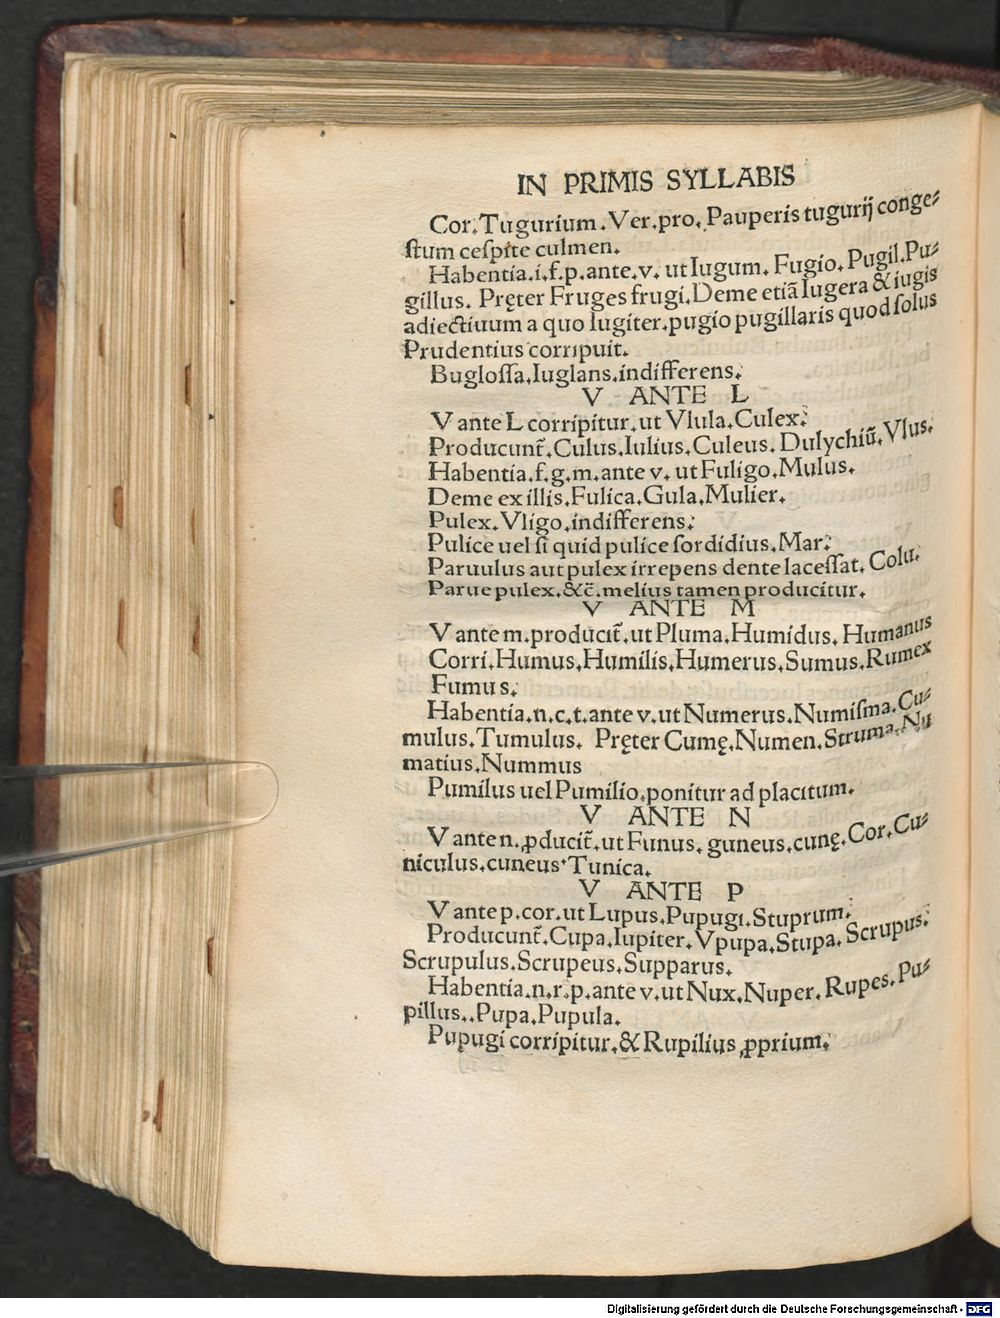 IN PRIMIS SYLLABIS
Cor. Tugurium. Ver. pro. Pauperis tugurij conge⸗
ſtum ceſpite culmen.
Habentia. i. f. p. ante. v. ut Iugum. Fugio. Pugil. Pu⸗
gillus. Pręter Fruges frugi. Deme etiā Iugera & iugis
adiectiuum a quo Iugiter. pugio pugillaris quod ſolus
Prudentius corripuit.
Bugloſſa. Iuglans. indifferens.
V ANTE L
V ante L corripitur. ut Vlula. Culex.
Producunt̄. Culus. Iulius. Culeus. Dulychiū. Vlus.
Habentia. f. g. m. ante v. ut Fuligo. Mulus.
Deme ex illis. Fulica. Gula. Mulier.
Pulex. Vligo. indifferens.
Pulice uel ſi quid pulice ſordidius. Mar.
Paruulus aut pulex irrepens dente laceſſat. Colu.
Parue pulex. &c̄. melius tamen producitur.
V ANTE M
V ante m. producit̄. ut Pluma. Humidus. Humanus
Corri. Humus. Humilis. Humerus. Sumus. Rumex
Fumus.
Habentia. n. c. t. ante v. ut Numerus. Numiſma. Cu⸗
mulus. Tumulus. Pręter Cumę. Numen. Struma. Nu
matius. Nummus
Pumilus uel Pumilio. ponitur ad placitum.
V ANTE N
V ante n. ꝓducit̄. ut Funus. guneus. cunę. Cor. Cu⸗
niculus. cuneus. Tunica.
V ANTE P
V ante p. cor. ut Lupus. Pupugi. Stuprum.
Producunt̄. Cupa. Iupiter. Vpupa. Stupa. Scrupus.
Scrupulus. Scrupeus. Supparus.
Habentia. n. r. p. ante v. ut Nux. Nuper. Rupes. Pu⸗
pillus. . Pupa. Pupula.
Pupugi corripitur. & Rupilius ꝓprium.
Digitalisierung gefördert durch die Deutsche Forschungsgemeinschaft - DFG